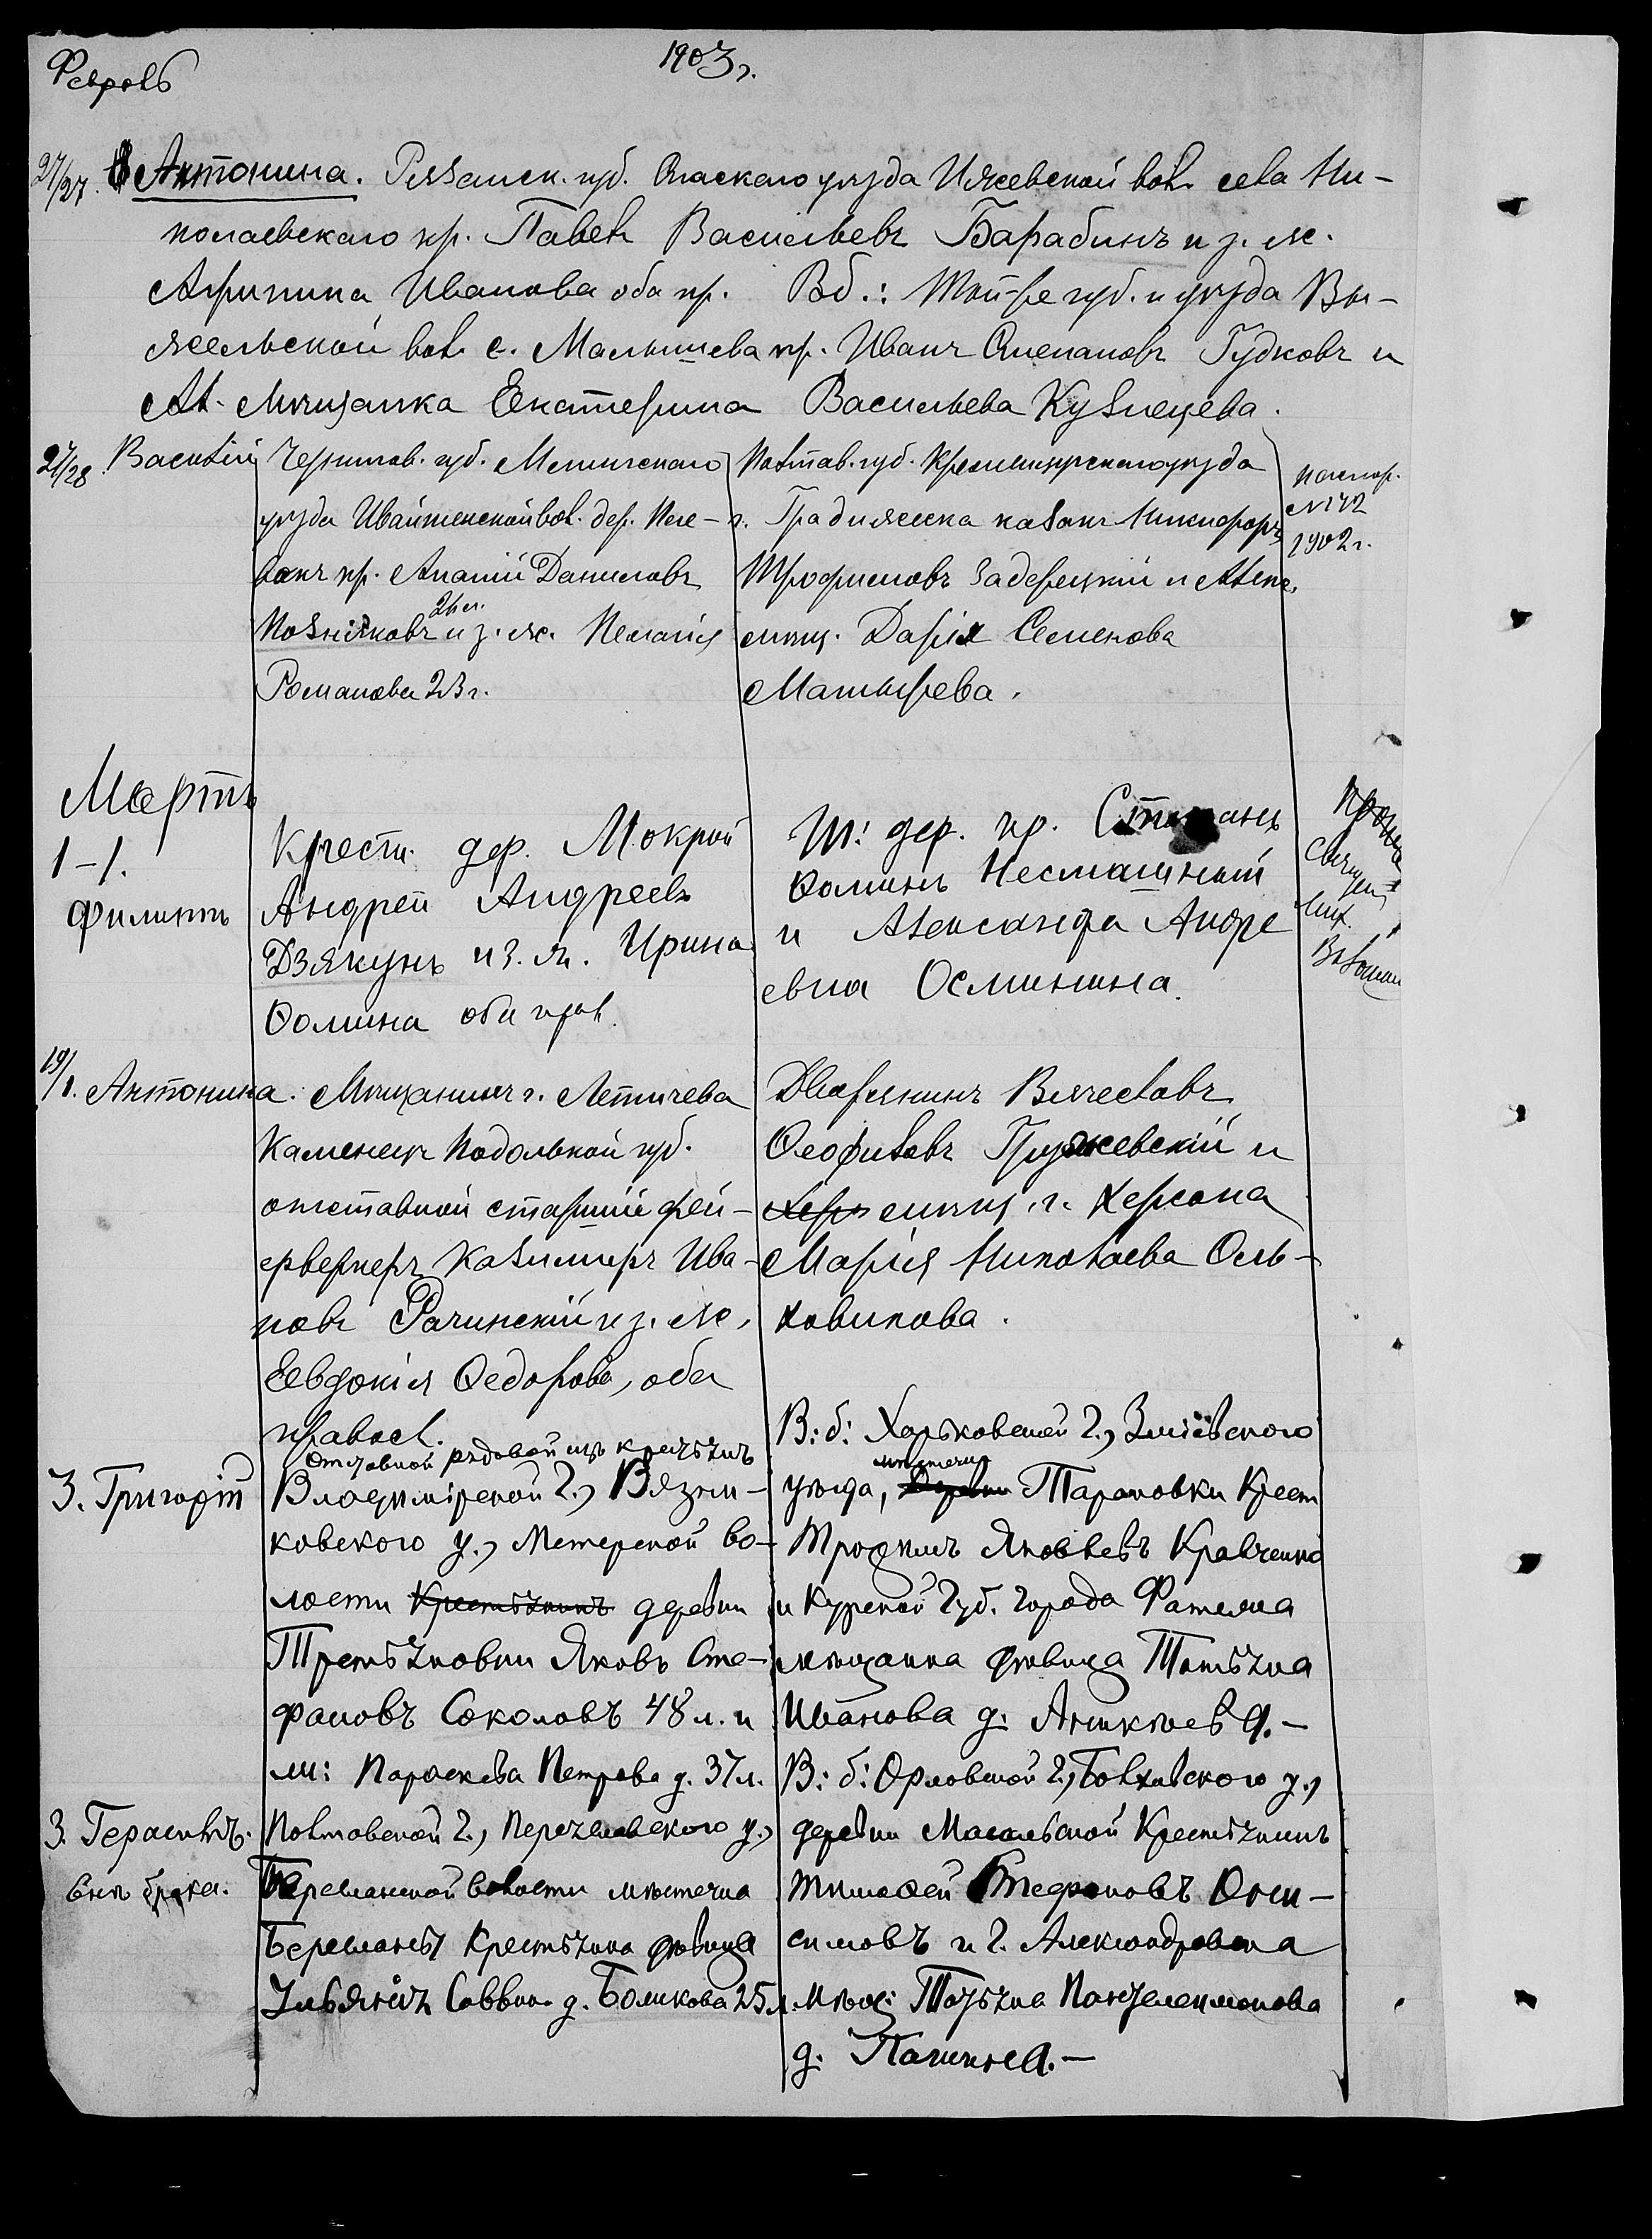 1903 г.
Февраль
27/27. Антонина. Рязанск. губ. Спаскаго уѣзда Ижевской вол. села Ни-
колаевскаго кр. Павелъ Васильевъ Барабинъ и з. ж.
Агрипина Иванова оба пр. Вб.: Той-же губ. и уѣзда Вы-
жельской вол. с. Малышева кр. Иванъ Степановъ Гудковъ и
Ал. мѣщанка Екатерина Васильева Кузнецева.
27/28. Василій
Чернигов. губ. Мглинскаго
уѣзда Ивайтенской вол. дер.
кр. Ананій Даниловъ
Позняковъ 26 л. и з. ж. Пелагія
Романова 23 г.
Полтав. губ. Кременчугскаго уѣзда
г. Градижска казакъ Никифоръ
Трофимовъ Задерецкій и Алек.
мѣщ. Дарія Семенова
Матырева.
паспор.
№ 172
1902 г.
Мартъ
1-1.
Филиппъ
Крест. дер. Мокрой
Андрей Андреевъ
Дзякунъ и з. ж. Ирина
Ѳомина оба прав.
Т: дер. кр. Степанъ
Ѳоминъ Несмашный
и Александра Андре
евна Осминина.
Священ
Мих.
19/1. Антонина.
Мѣщанинъ г. Летичева
Каменецъ Подольской губ.
отставной старшій фей-
ерверкеръ Казимиръ Ива-
новъ Рачинскій и з. ж.
Евдокія Ѳедорова, оба
правосл.
Дворянинъ Вячеславъ
Ѳеофиловъ Гружевскій и
Херс мѣщ. г. Херсона
Марія Николаева Оль-
ховикова.
3. Григорій
Отставной рядовой изъ крестьянъ
Владимірской г., Вязни-
ковского у., Мстерской во-
лости Крестьянинъ деревни
Третьяковки Яковъ Сте-
фановъ Соколовъ 48 л. и
ж: Параскева Петрова д. 37 л.
В: б: Харьковской г., Зміевского
уѣзда, Деревни мѣстечка Тарановки Крест
Трофимъ Яковлевъ Кравченко
и Курской Губ. города Фатежа
мѣщанка дѣвица Татьяна
Иванова д:
3. Герасимъ.
внѣ брака.
Полтавской г., Переяславского у.,
Березанской волости мѣстечка
Березани Крестьянка дѣвица
Ульянія Саввина д. Боликова 25 л.
В: б: Орловской г., Болховского у.,
деревни Масальской Крестьянинъ
Тимофей Стефановъ Они-
симовъ и г. Александровска
мѣщ: Татьяна Пантелеимонова
д: Пашина.—